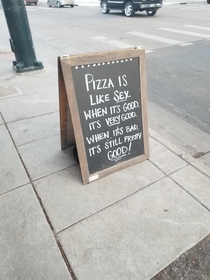 PIZZA IS
LIKE SEX.
WHEN IT'S GOOD,
IT'S VERY GOOD.
WHEN IT'S BAD,
IT'S STILL PRETTY
GOOD!